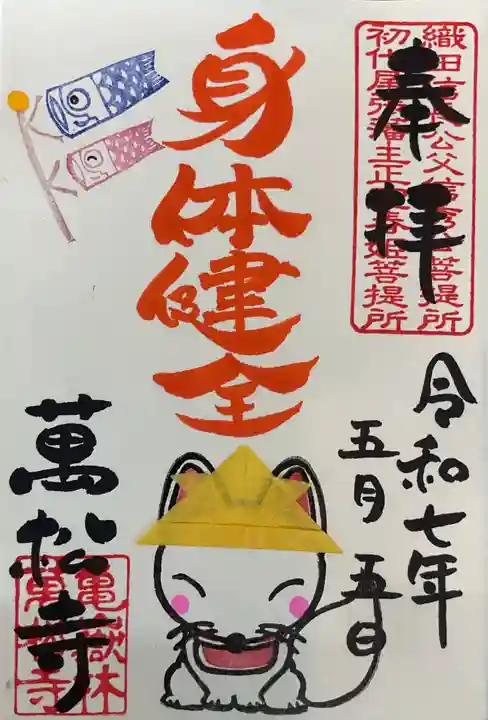 奉拝
織田信長公父信秀公菩提所
初代尾張藩主正室春姫菩提所
令和七年
五月五日
身体健全
萬松寺
亀嶽林
萬松寺